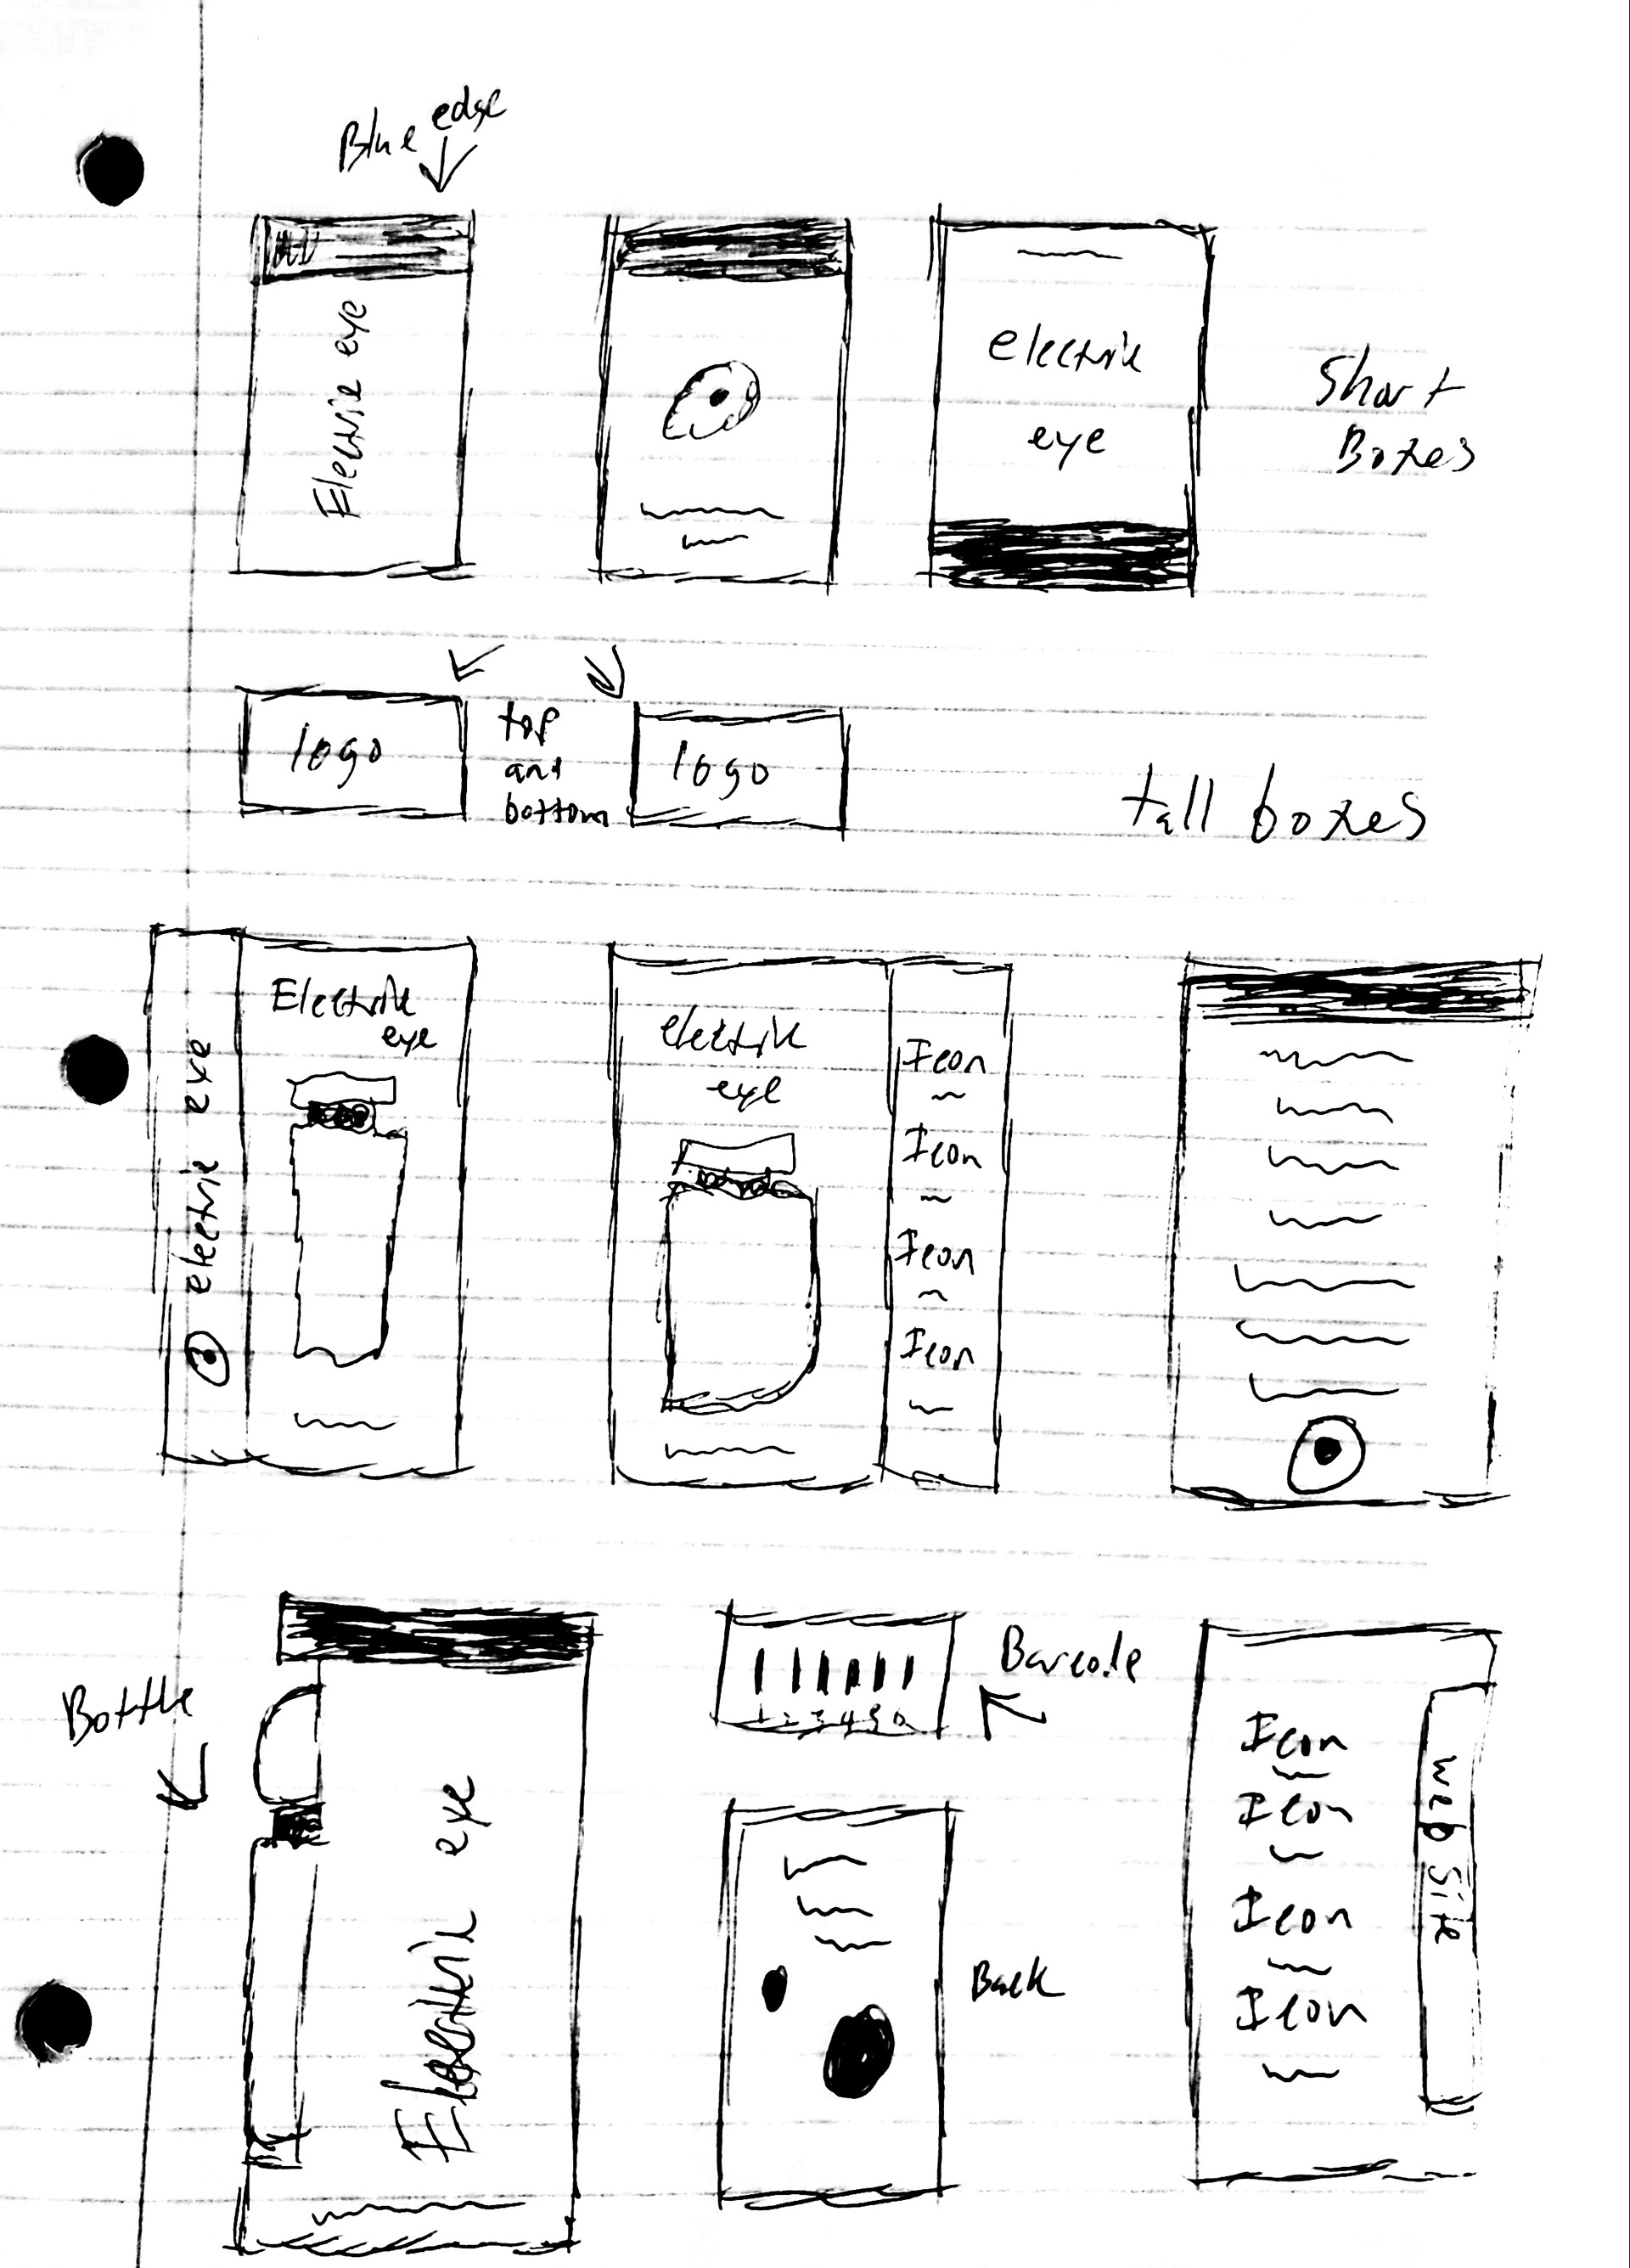 Blue edge
Electric eye
electric
eye
Short
Boxes
logo
top
and
bottom
logo
tall boxes
electric eye
Electric
eye
electric
eye
Icon
Icon
Icon
Icon
Bottle
Electric eye
Barcode
1 2 3 4 5 6
Back
Icon
Icon
Icon
Icon
web site